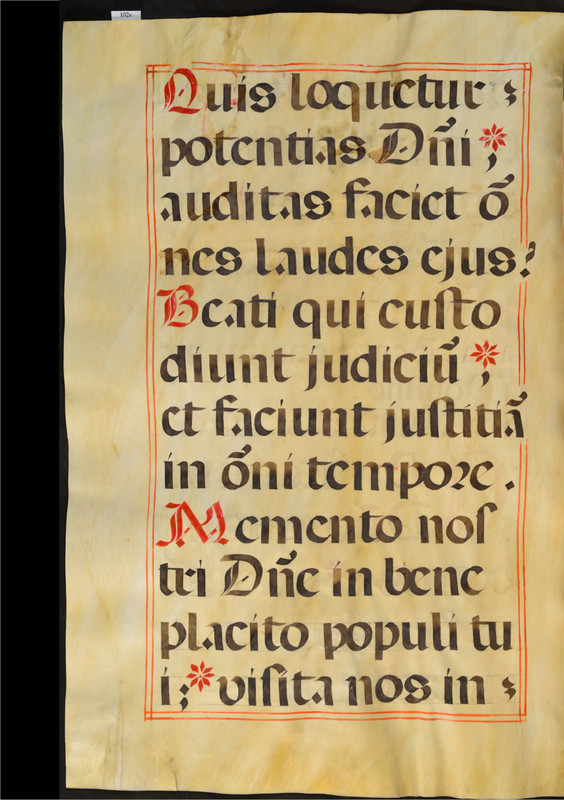 102v
Quis loquetur ;
potentias Dñi ; *
auditas faciet õ
nes laudes ejus?
Beati qui cuſto
diunt judiciũ ; *
et faciunt juſtitiã
in õni tempore .
Memento noſ
tri Dñe in bene
placito populi tu
i ; * viſita nos in ;